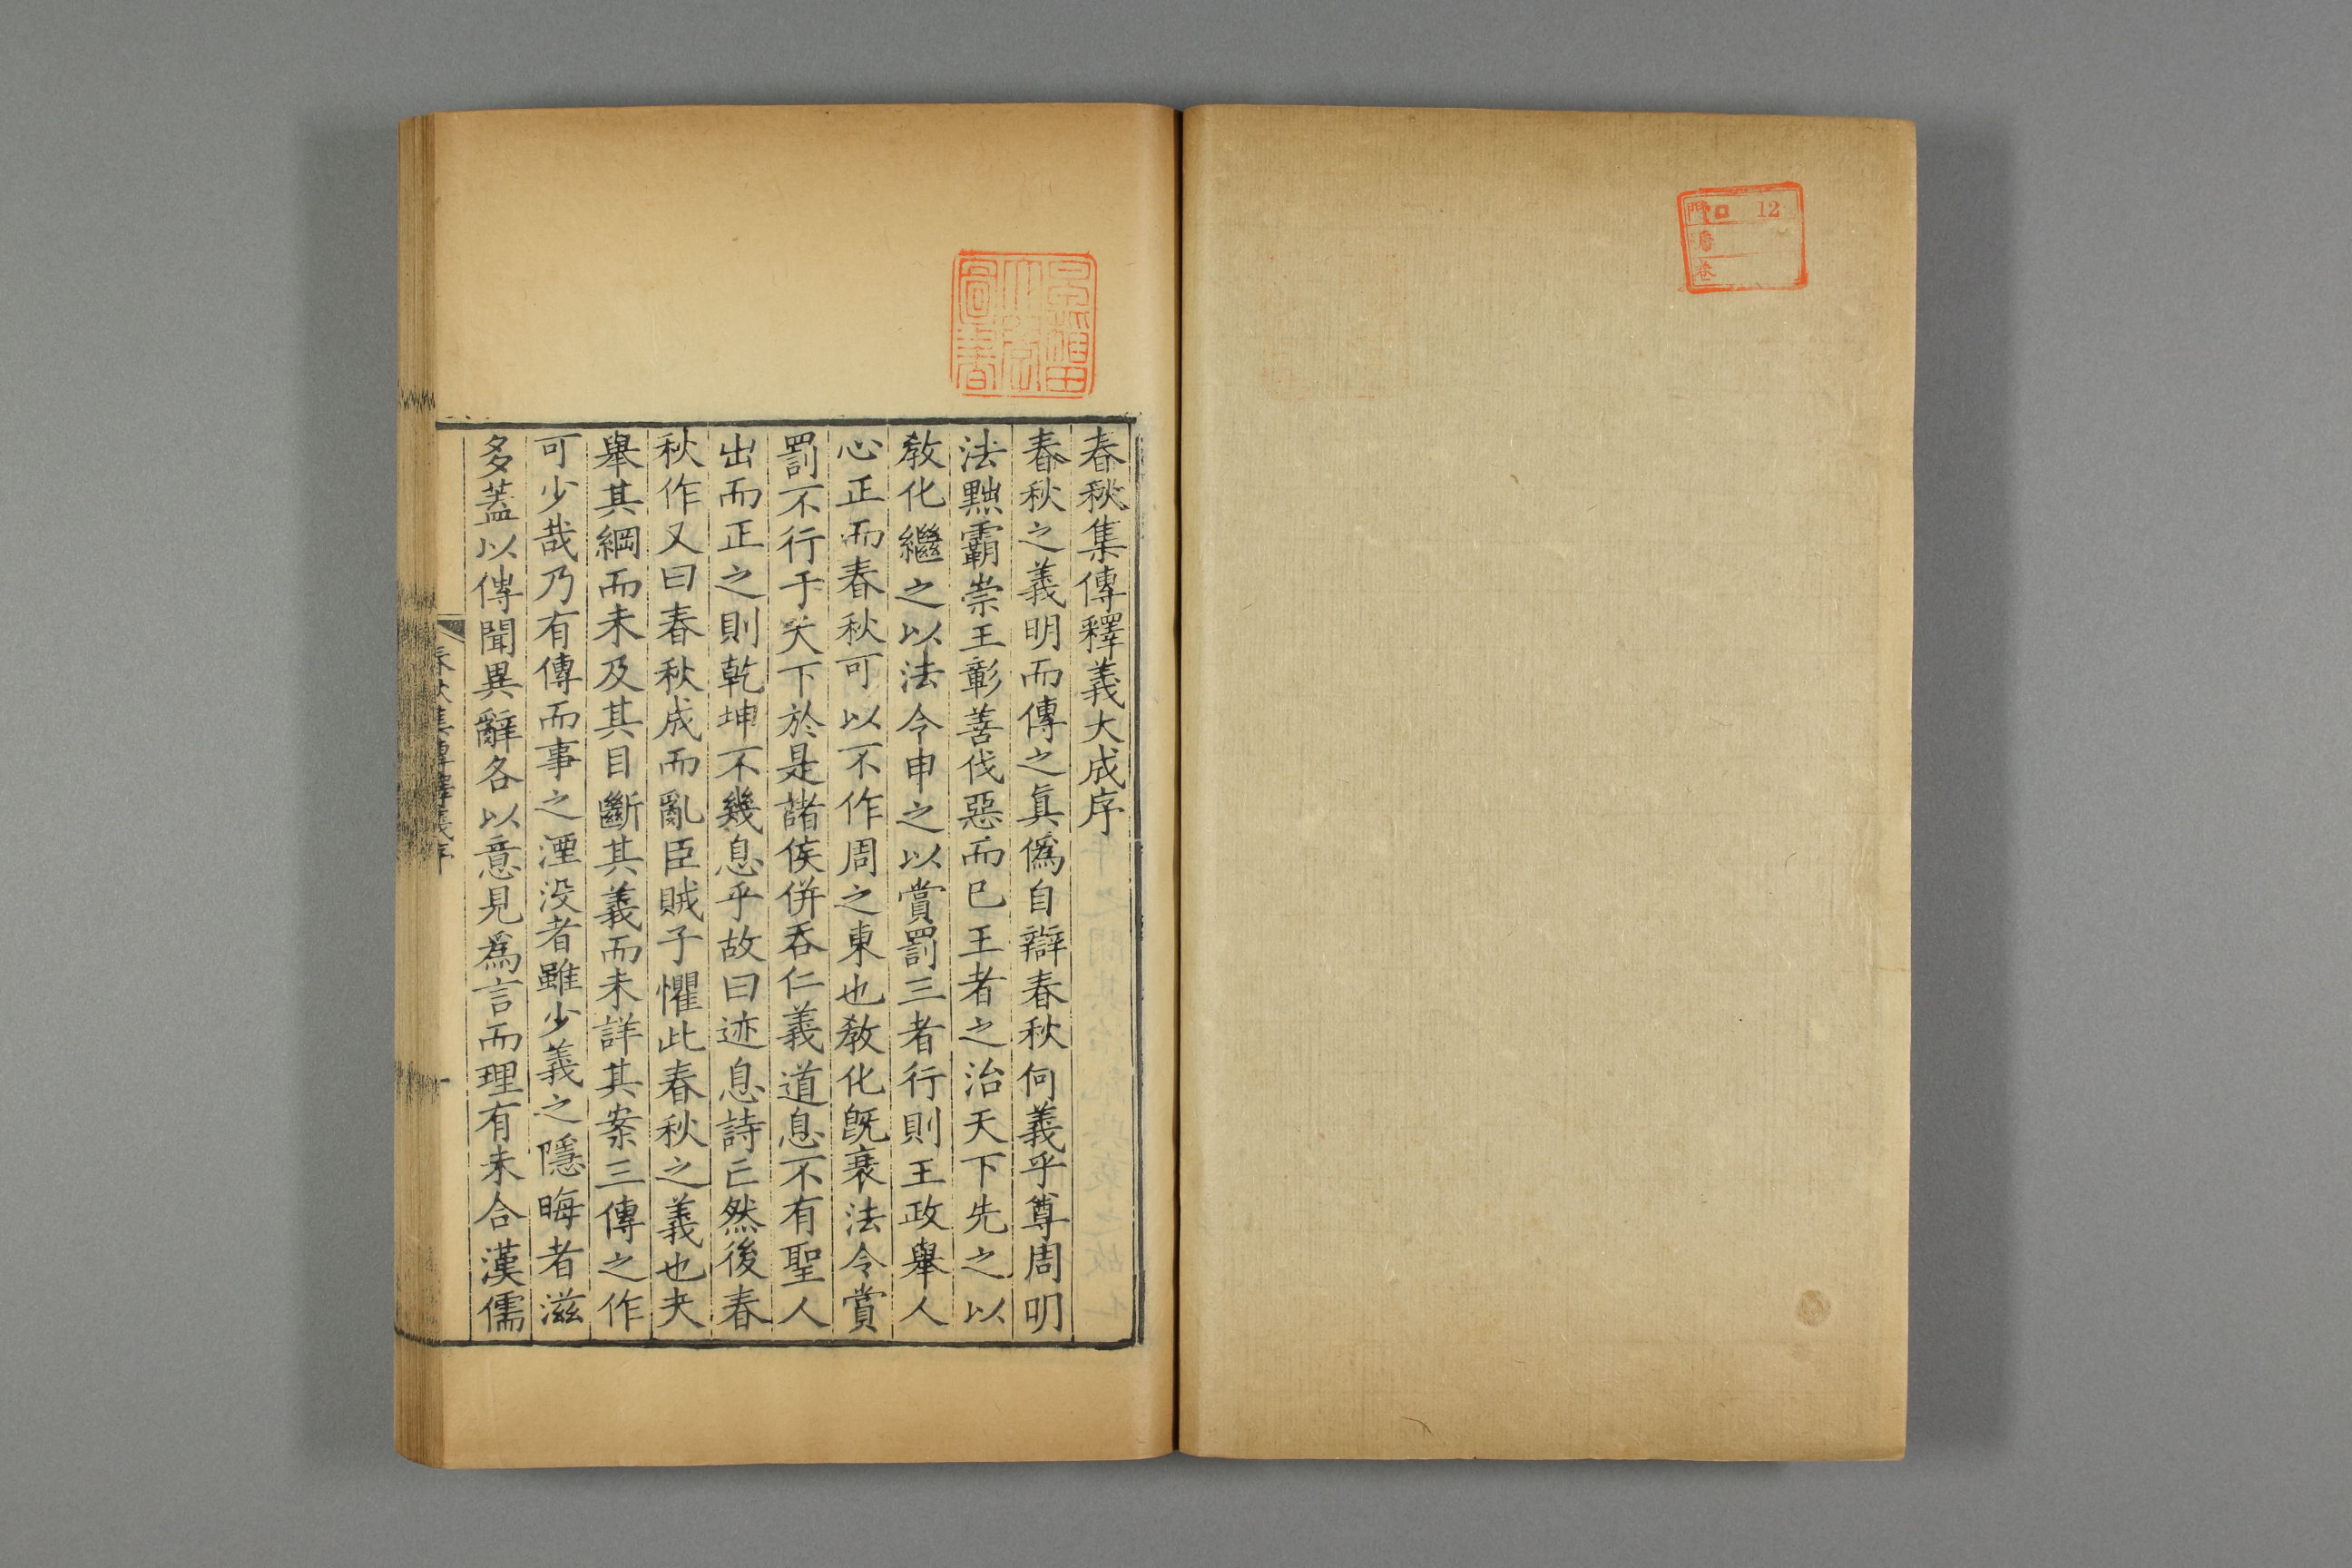 門 口 12
番
卷
春秋集傳釋義大成序
春秋之義明而傳之真偽自辯春秋何義乎尊周明
法黜霸崇王彰善伐惡而已王者之治天下先之以
教化繼之以法令申之以賞罰三者行則王政舉人
心正而春秋可以不作周之東也教化既衰法令賞
罰不行于天下於是諸侯併吞仁義道息不有聖人
出而正之則乾坤不幾息乎故曰迹息詩亡然後春
秋作又曰春秋成而亂臣賊子懼此春秋之義也夫
舉其綱而未及其目斷其義而未詳其案三傳之作
可少哉乃有傳而事之湮没者雖少義之隱晦者滋
多蓋以傳聞異辭各以意見為言而理有未合漢儒
春秋集傳釋義序
一